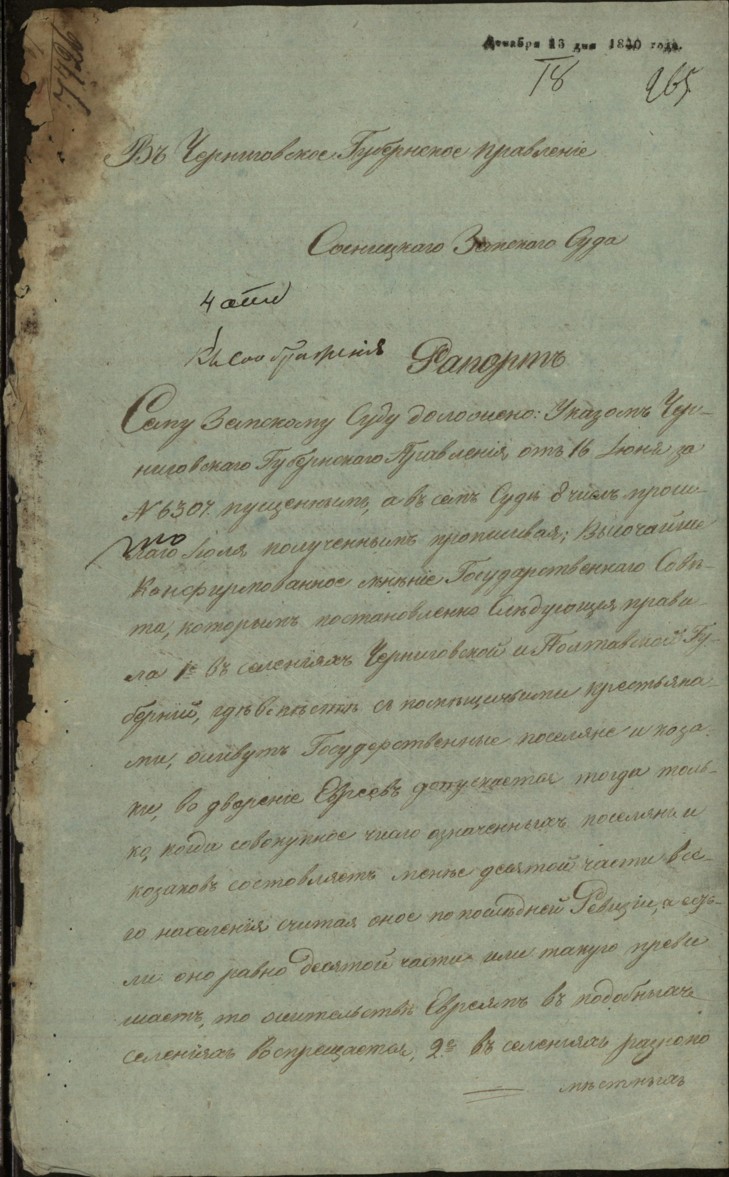 Декабря 13 дня 1840 года.
18
265
Въ Черниговское Губернское Правленіе
Сосницкаго Земского Суда
Къ соображенія
Рапортъ
Сему Земскому Суду доложено: Указомъ Чер-
ниговскаго Губернскаго Правленія, отъ 16 Іюня за
№ 6307. пущеннымъ, а въ семъ Суде 8 чисдъ прош-
лаго Іюля полученнымъ прописывая; Высочайше
Конфирмованное мнѣніе Государственнаго Совѣ-
та, которымъ постановленно слѣдующія прави
ла 1е въ селеніяхъ Черниговской и Полтавской Гу-
берній, гдѣ вмѣстѣ съ помѣщичьими крестьяна-
ми, живутъ Государственные поселяне и коза-
ки, во двореніе Евреевъ допускается тогда толь-
ко, когда совокупное число означенныхъ поселянъ и
козаковъ состовляетъ менѣе десятой части все-
го населенія считая оное по послѣдней Ревизіи, а есть-
ли оно равно десятой части или такую превы
шаетъ, то жительствѣ Евреямъ въ подобныхъ
селеніяхъ воспрещается, 2е въ селеніяхъ разнопо
мѣстныхъ